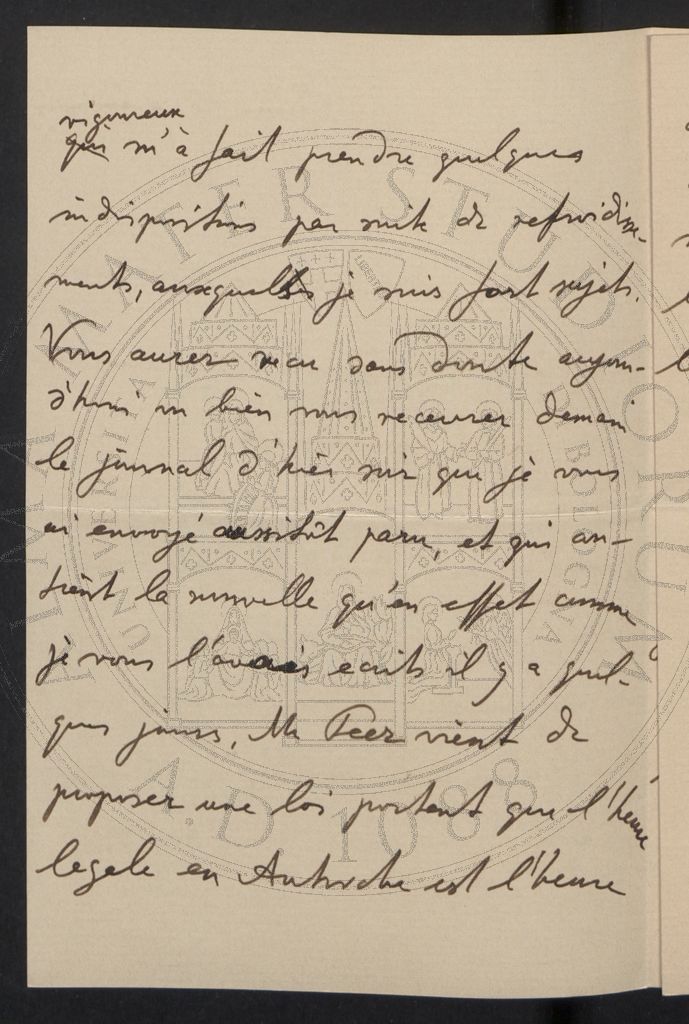 vigoureux
qui m'à fait prendre quelques
indispositions par suite de refroidisse-
ments, auxquells je suis fort sujets.
Vous aurez recu sans doute aujour-
d'hui ou bien vous recevrez demain
le journal d'hier soir que je vous
ai envoyé aussitôt paru, et qui con-
tient la nouvelle qu'en effet comme
je vous l'avais ecrits il y a quel-
ques jours, Mr Peez vient de
proposer une loi portent que l'heure
legale en Autriche est l'heure
ALMA MATER STUDIORUM
A.D. 1088